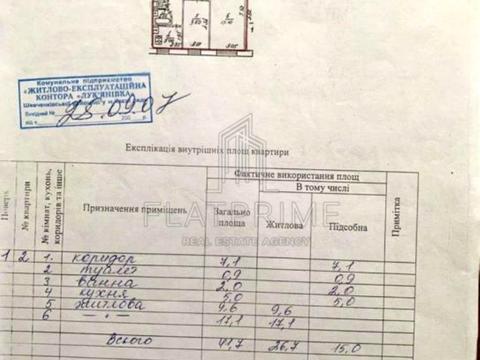 Комунальне підприємство
«ЖИТЛОВО-ЕКСПЛУАТАЦІЙНА
КОНТОРА «ЛУК'ЯНІВКА
25.09.07
Експлікація внутрішніх площ квартири
FLATPRIME
REAL ESTATE AGENCY
Поверх
№ квартири
№ кімнат, кухонь, коридорів та інше
Призначення приміщень
Фактичне використання площ
В тому числі
Загально площа
Житлова
Підсобна
Примітка
1 2 1. коридор 7,1 7,1
2 туалет 0,9 0,9
3 ванна 2,0 2,0
4 кухня 5,0 5,0
5 житлова 9,6 9,6
6 —»— 17,1 17,1
Всього 41,7 26,7 15,0